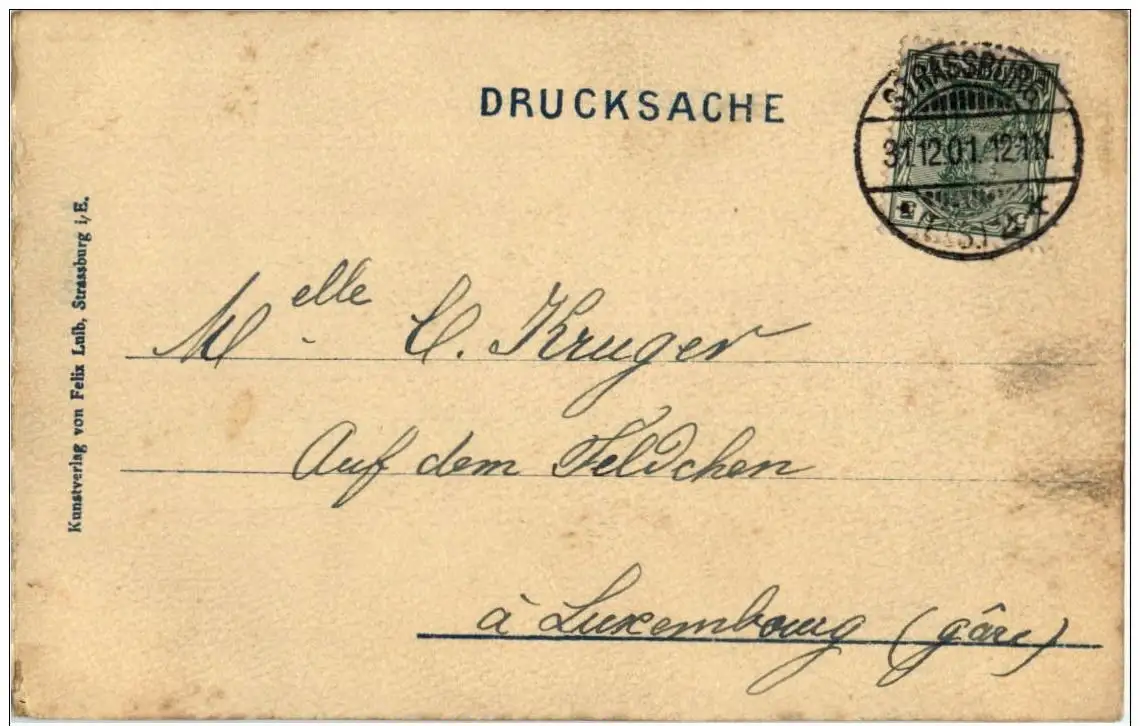 DRUCKSACHE
STRASSBURG
31.12.01. 12-1N.
Melle C. Kruger
Auf dem Feldchen
à Luxembourg (gâre)
Kunstverlag von Felix Luib, Strassburg i/E.